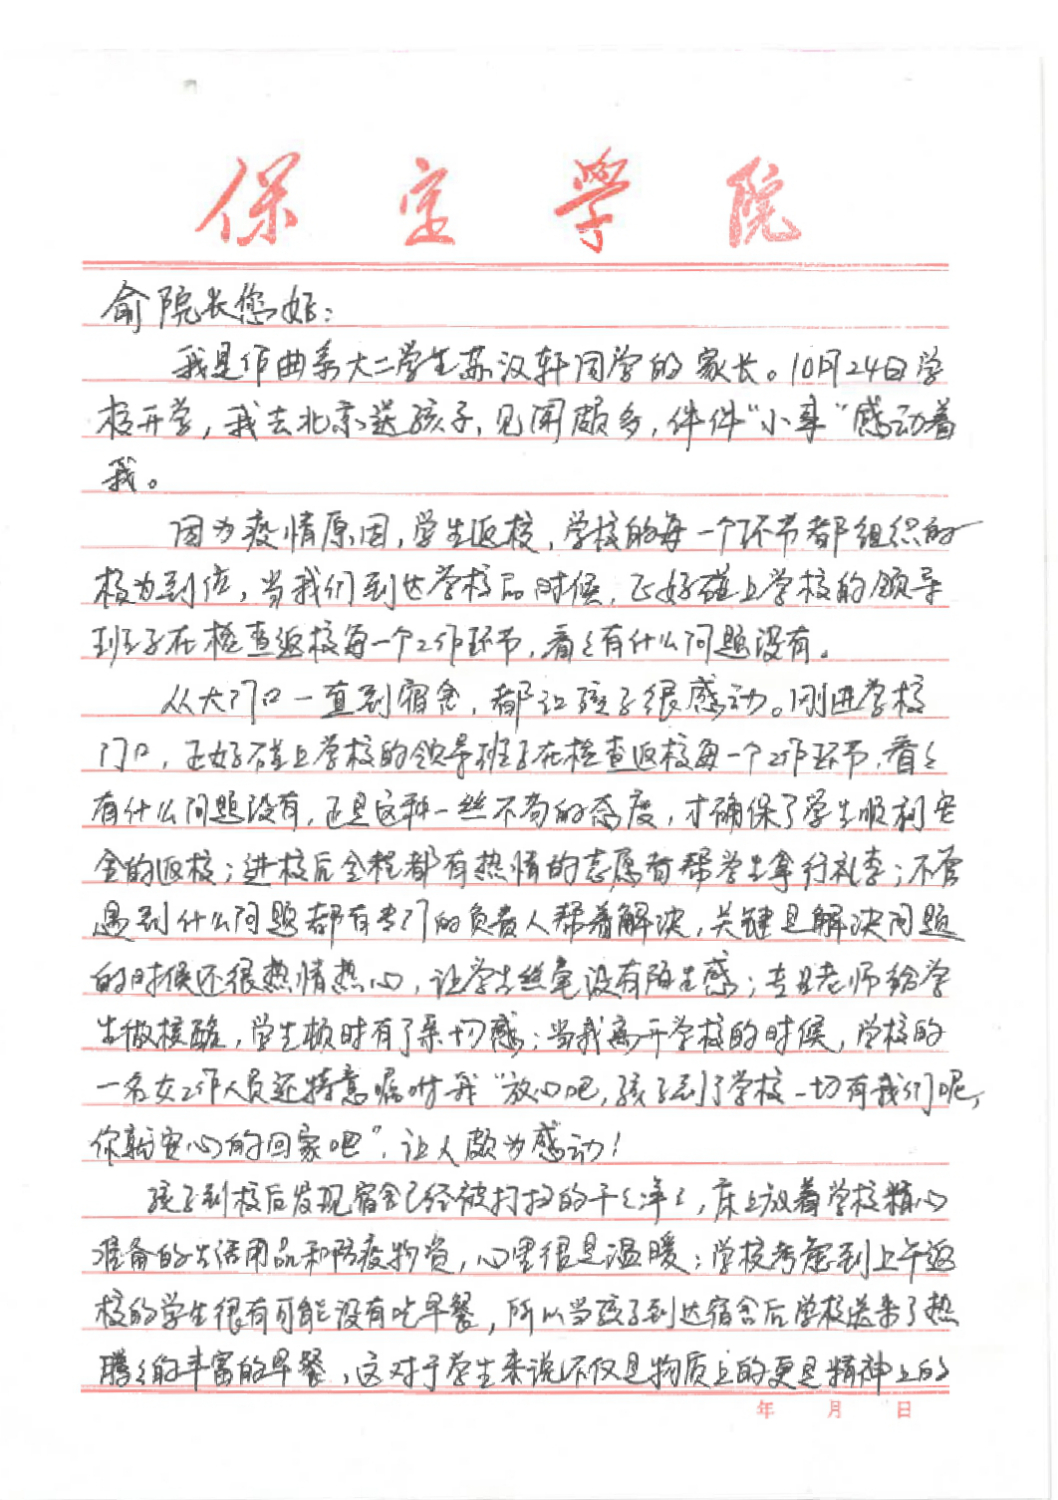 保定学院
俞院长您好：
我是作曲系大二学生苏汉轩同学的家长。10月24日学
校开学，我去北京送孩子，见闻颇多，件件“小事”感动着
我。
因为疫情原因，学生返校，学校的每一个环节都组织的
极为到位，当我们到达学校的时候，正好碰上学校的领导
班子在检查返校每一个工作环节，看看有什么问题没有。
从大门口一直到宿舍，都让孩子很感动。刚进学校
门口，正好碰上学校的领导班子在检查返校每一个工作环节，看看
有什么问题没有，正是这种一丝不苟的态度，才确保了学生顺利安
全的返校；进校后全程都有热情的志愿者帮学生拿行礼李；不管
遇到什么问题都有专门的负责人帮着解决，关键是解决问题
的时候还很热情热心，让学生丝毫没有陌生感；专业老师给学
生做核酸，学生顿时有了亲切感；当我离开学校的时候，学校的
一名女工作人员还特意嘱咐我“放心吧，孩子到了学校一切有我们呢，
你就安心的回家吧”，让人颇为感动！
孩子到校后发现宿舍已经被打扫的干干净净，床上放着学校精心
准备的生活用品和防疫物资，心里很是温暖；学校考虑到上午返
校的学生很有可能没有吃早餐，所以当孩子到达宿舍后学校送来了热
腾腾的丰富的早餐，这对于学生来说不仅是物质上的更是精神上的
年 月 日